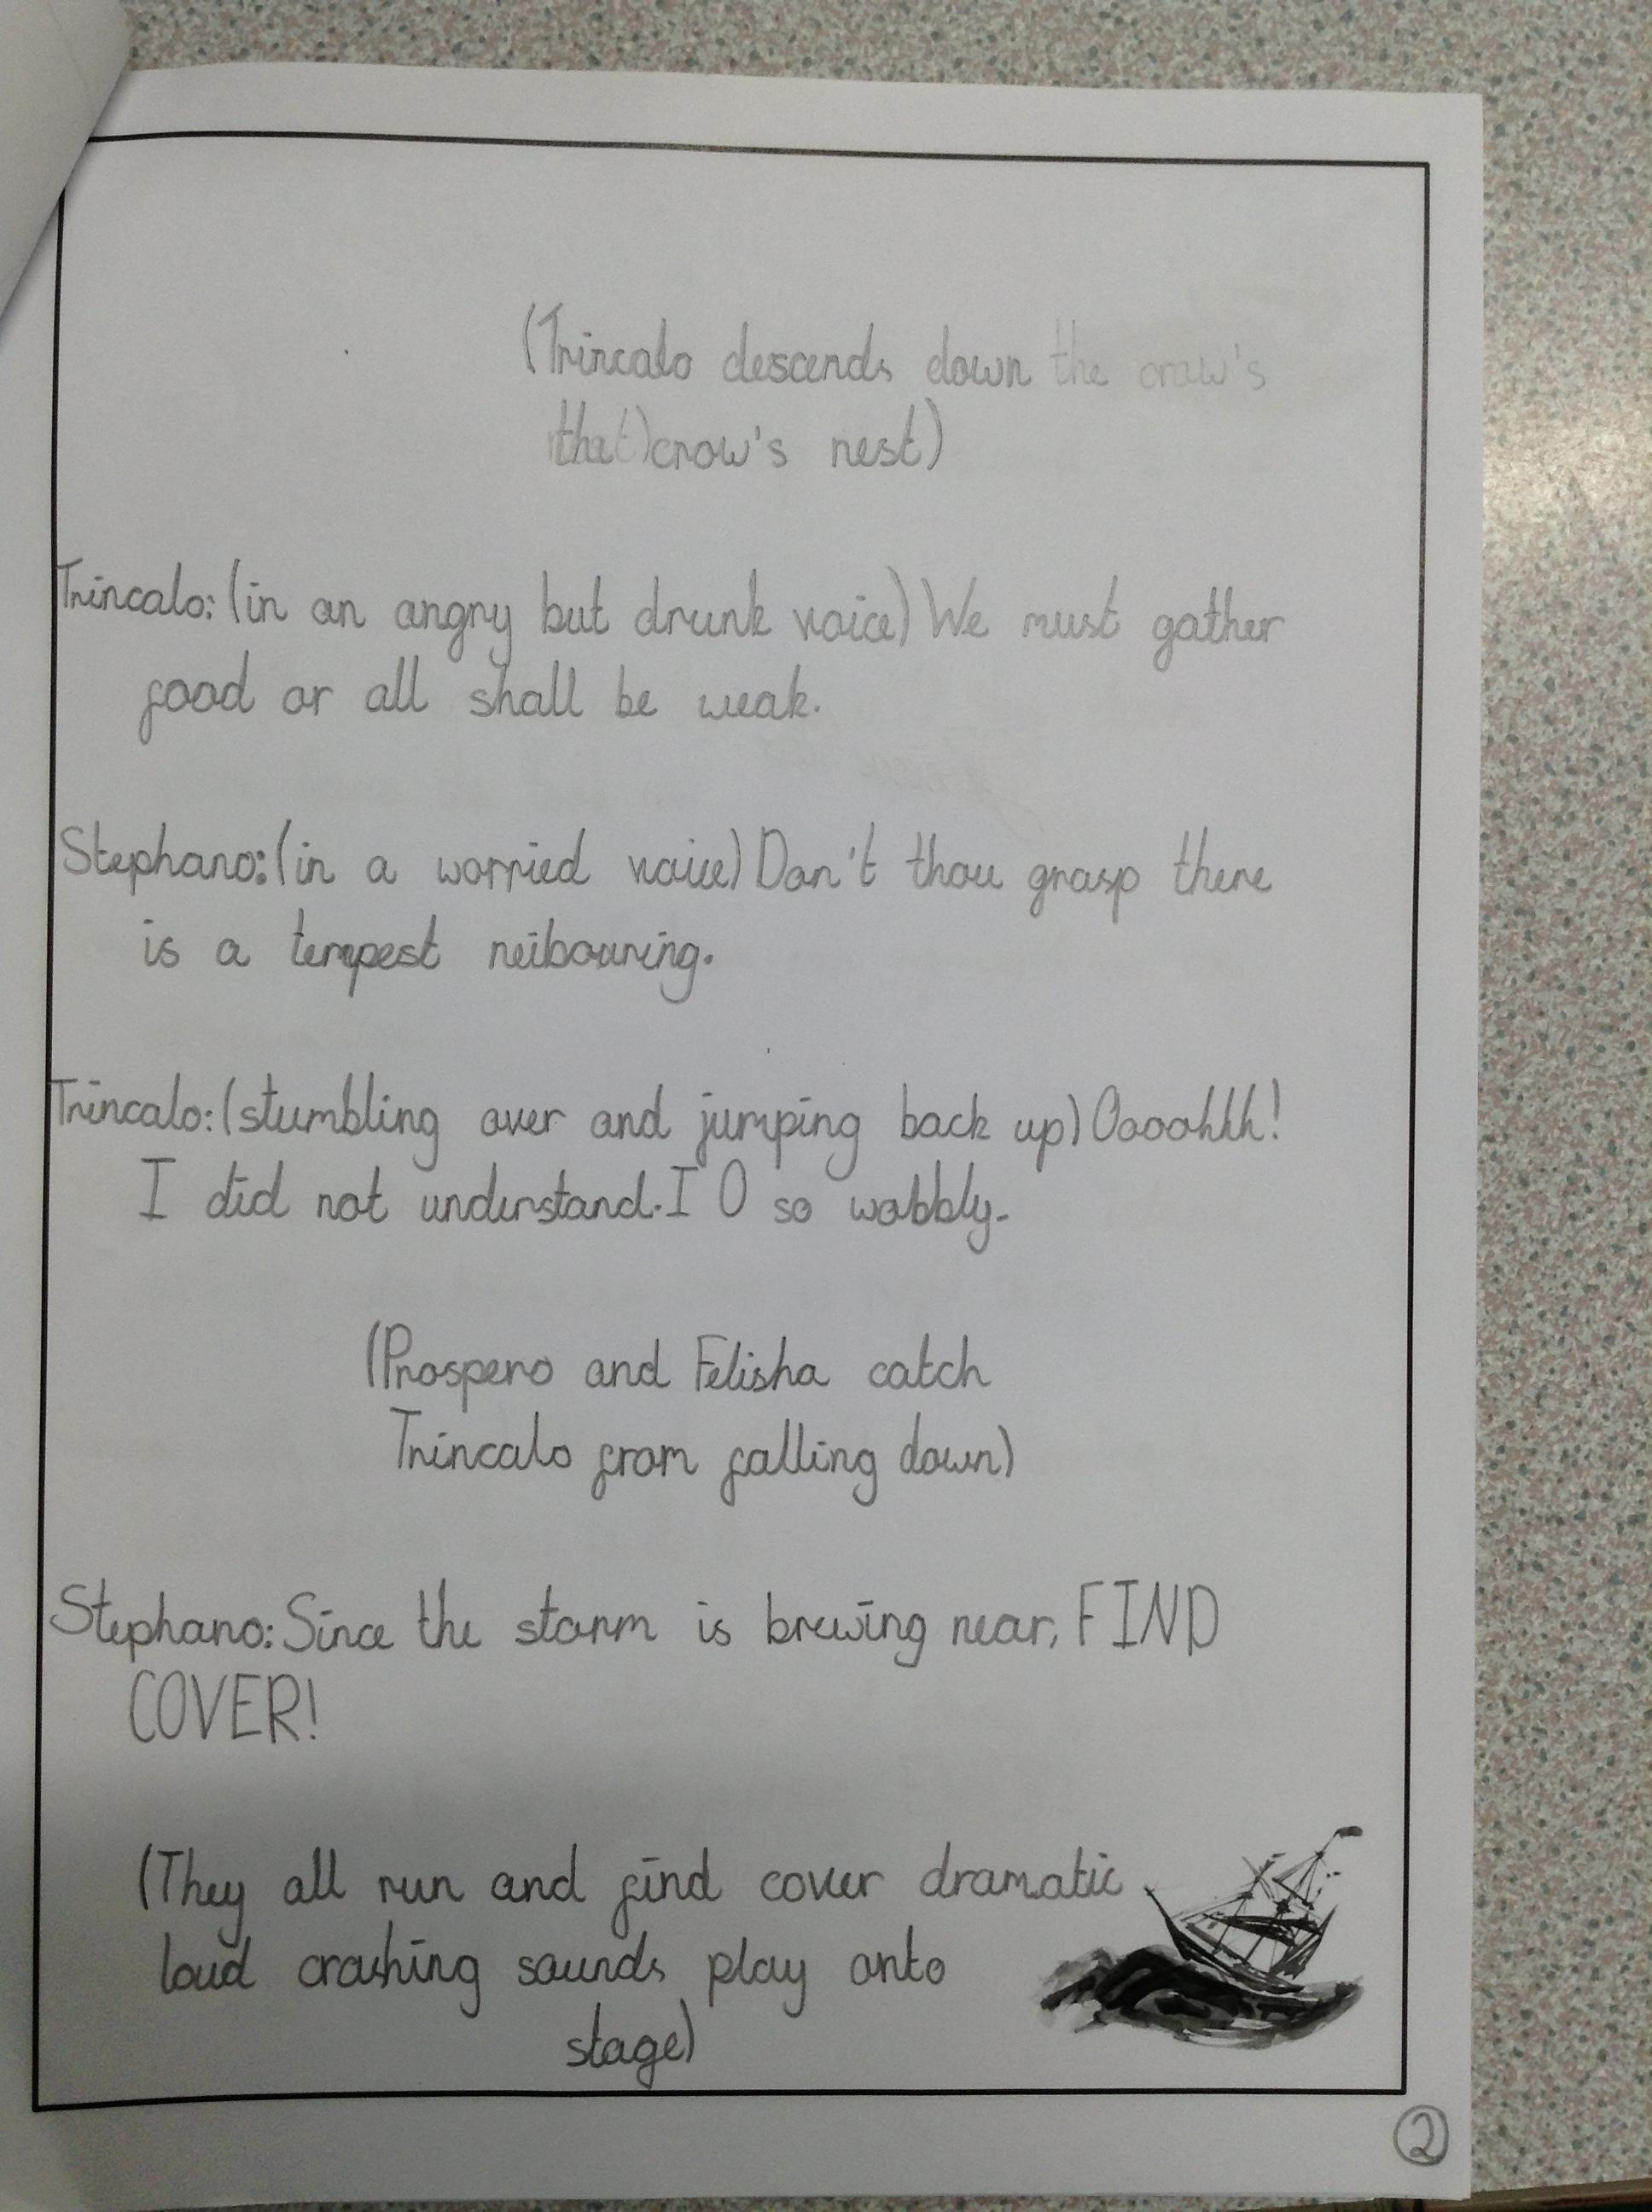 (Trincalo descends down the craw's
the crow's nest)
Trincalo: (in an angry but drunk voice) We must gather
food or all shall be weak.
Stephano: (in a worried voice) Don't thou grasp there
is a tempest neibouring.
Trincalo: (stumbling over and jumping back up) Ooooohhh!
I did not understand. I O so wobbly.
(Prospero and Felisha catch
Trincalo from falling down)
Stephano: Since the storm is brewing near, FIND
COVER!
(They all run and find cover dramatic
loud crashing sounds play onto
stage)
2